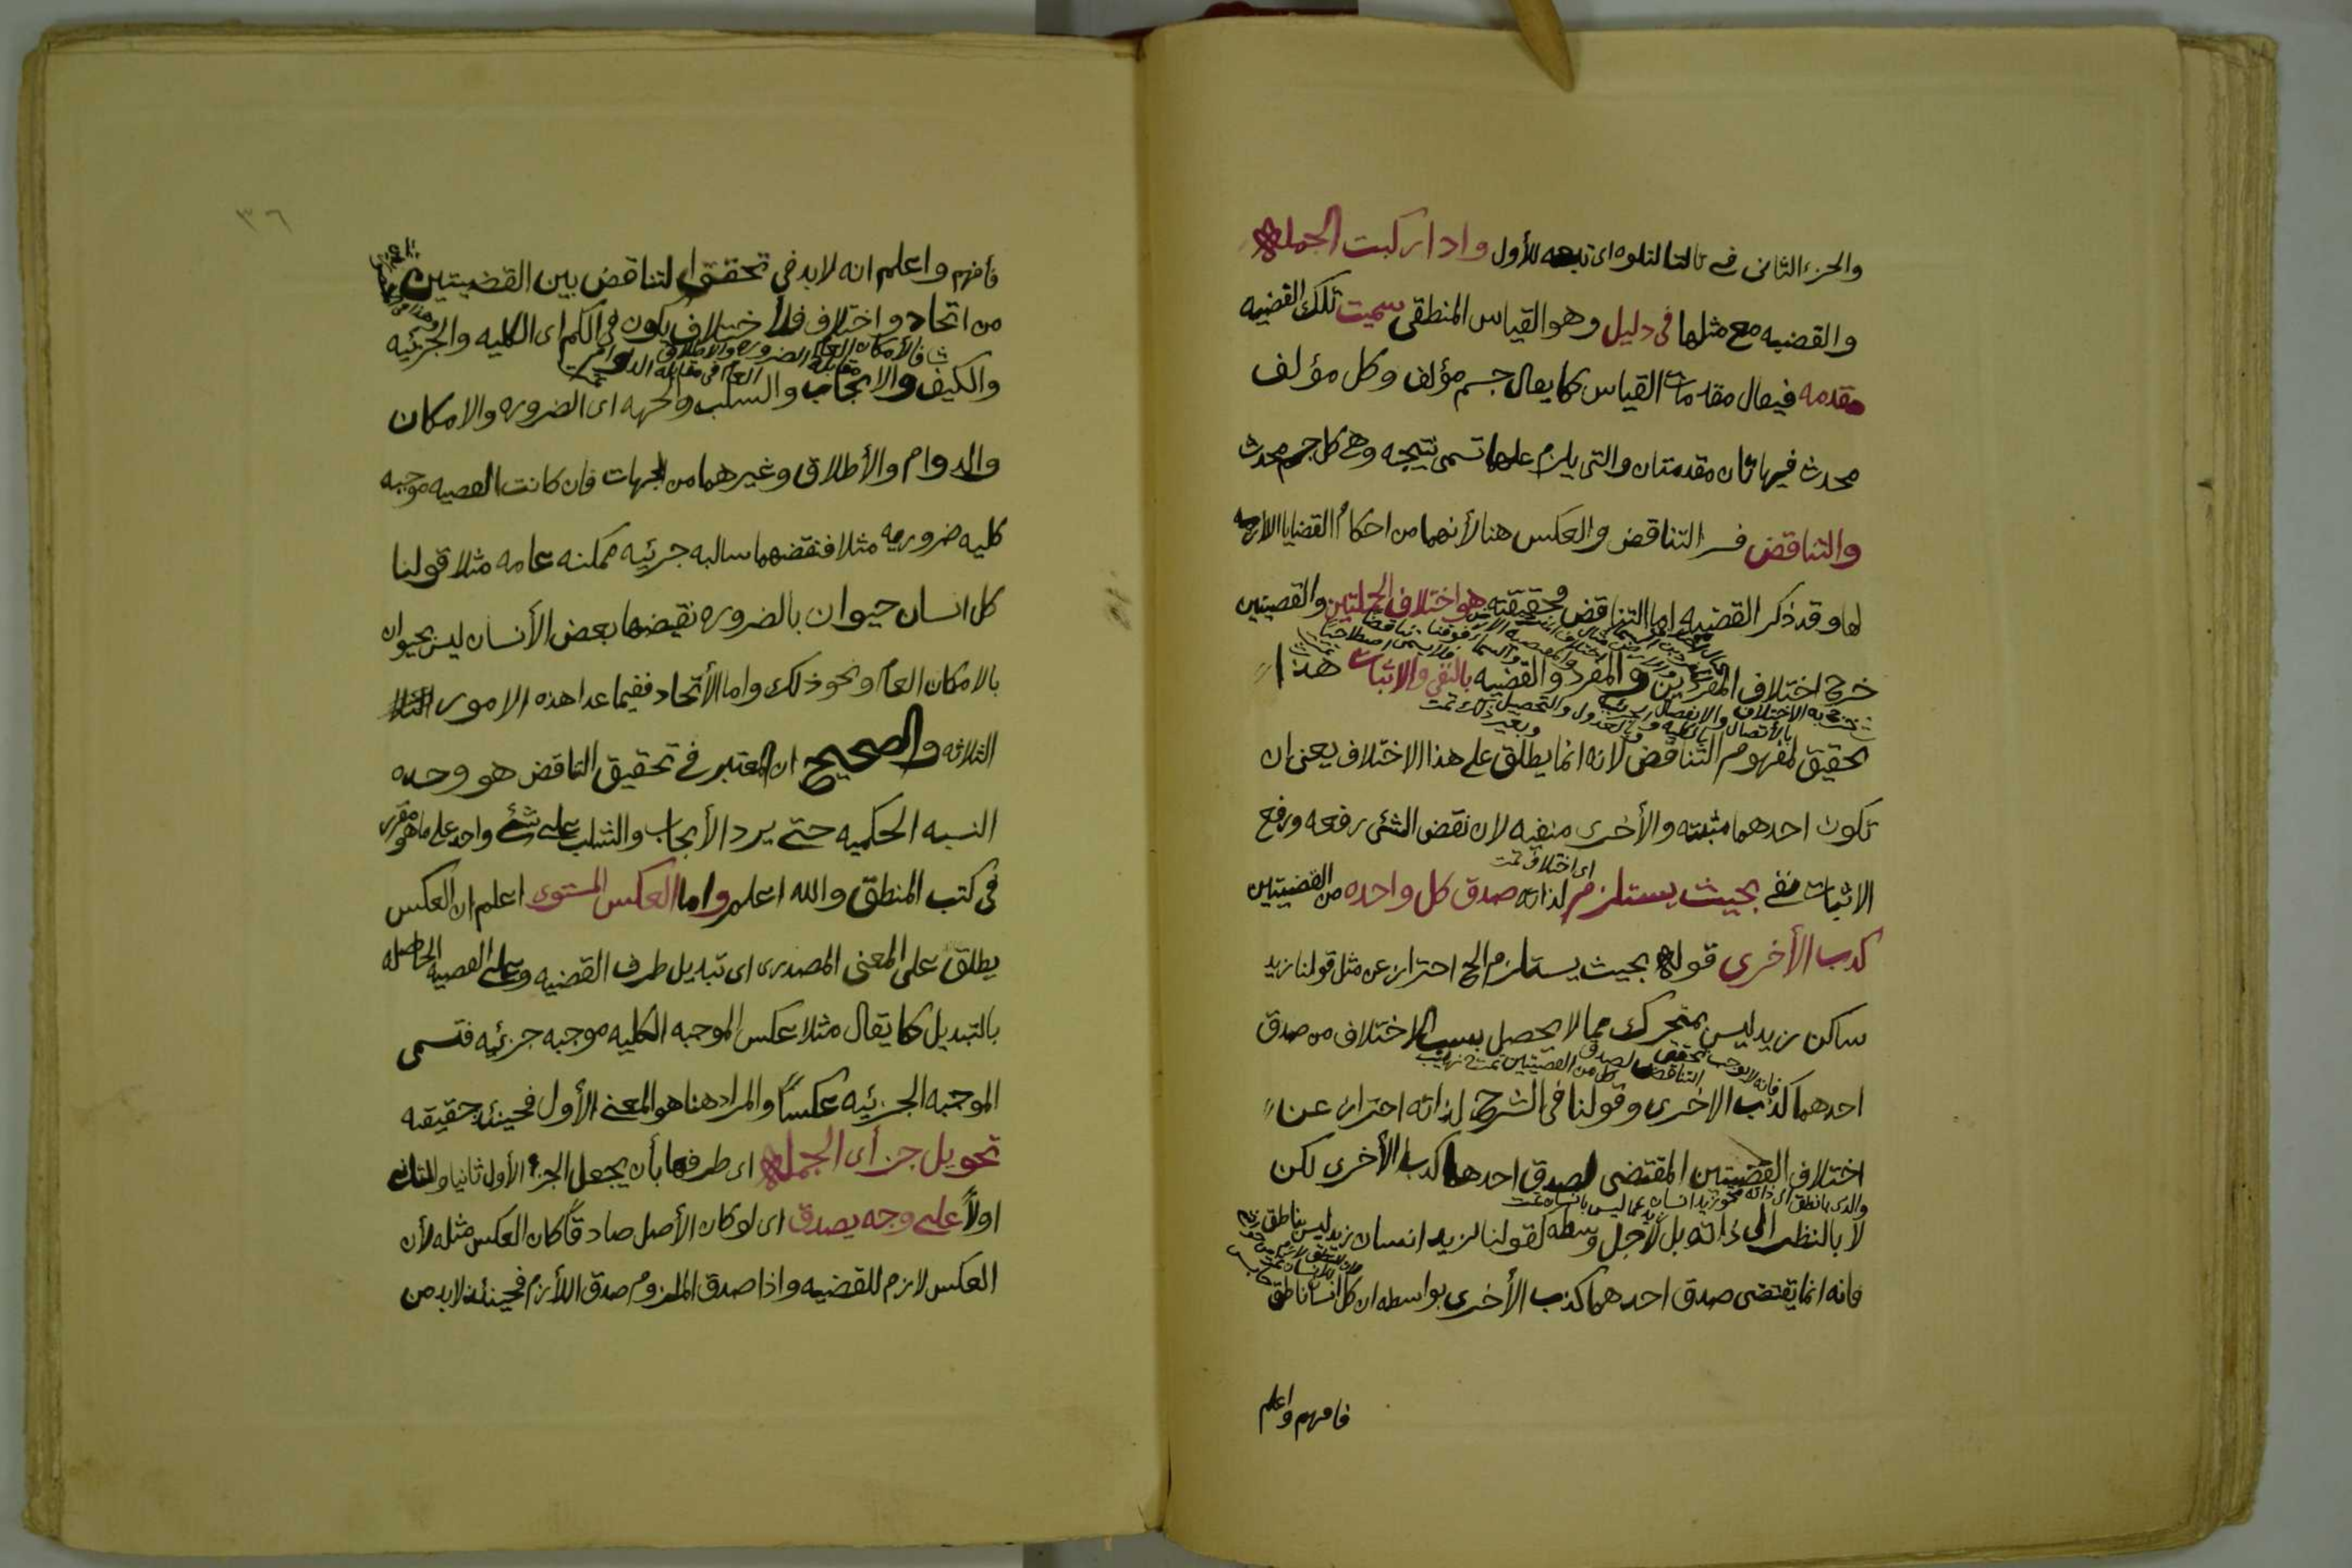 والجزء الثانى فے تالتا لتلوه اى تبعه للأول واذا ركبت الجملة
والقضيه مع مثلها فى دليل وهو القياس المنطقى سميت تلك القضيه
مقدمه فيقال مقدمات القياس كما يقال جسم مؤلف وكل مؤلف
محدث فهاتان مقدمتان والتى يلزم عليها تسمى نتيجه وهى كل جسم محدث
والتناقض فسر التناقض والعكس هنا لأنهما من احكام القضايا اللازمه
لها وقد ذكر القضيه اما التناقض فحقيقته هو اختلاف الجملتين والقضيتين
خرج اختلاف المفردين والمفرد والقضيه بالنفى والاثبات هذا
يخرج به الاختلاف بالاتصال والانفصال والكليه وبالعدول والتحصيل وبغير ذلك تمت
تحقيق لمفهوم التناقض لانه انما يطلق على هذا الاختلاف يعنى ان
تكون احدهما مثبته والأخرى منفيه لان نقض الشئ رفعه ورفع
اى اختلاف تمت
الاثبات نفے بحيث يستلزم لذاته صدق كل واحده من القضيتين
كذب الأخرى قوله بحيث يستلزم الخ احتراز عن مثل قولنا زيد
ساكن زيد ليس بمتحرك مما لا يحصل بسبب الاختلاف من صدق
فانه لا يوجب تحقق التناقض لصدق كل من القضيتين تمت
احدهما كذب الاخرى وقولنا فى الشرح لذاته احتراز عن
اختلاف القضيتين المقتضى لصدق احدهما كذب الأخرى لكن
لا بالنظر الى ذاته بل لأجل وسطه لقولنا زيد انسان زيد ليس بناطق
فانه انما يقتضى صدق احدهما كذب الأخرى بواسطه ان كل انسان ناطق
فافهم واعلم
٣٦
فأفهم واعلم انه لا بد في تحقق التناقض بين القضيتين
من اتحاد واختلاف فلأختلاف يكون فى الكم اى الكليه والجزئيه
فالأمكان العام مقابلة الضروره والاطلاق العام فى مقابلة الدوام تمت
والكيف والايجاب والسلب والجهه اى الضروره والامكان
والدوام والأطلاق وغيرهما من الجهات فان كانت القضيه موجبه
كليه ضروريه مثلا فنقضهما سالبه جزئيه ممكنه عامه مثلا قولنا
كل انسان حيوان بالضروره نقيضها بعض الأنسان ليس بحيوان
بالامكان العام ونحو ذلك واما الأتحاد ففيما عدا هذه الامور
الثلاثه والصحيح ان المعتبر فے تحقيق التناقض هو وحده
النسبه الحكميه حتى يرد الأيجاب والسلب على شئ واحد على ما هو مقرر
فى كتب المنطق والله اعلم واما العكس المستوى اعلم ان العكس
يطلق على المعنى المصدرى اى تبديل طرف القضيه وعلى القضيه الحاصله
بالتبديل كما يقال مثلا عكس الموجبه الكليه موجبه جزئيه فتسمى
الموجبه الجزئيه عكسًا والمراد هنا هو المعنى الأول فحينئذ حقيقه
تحويل جزأى الجملة اى طرفها بأن يجعل الجزء الأول ثانيا والثانى
اولاً على وجه يصدق اى لو كان الأصل صادقًا كان العكس مثله لأن
العكس لازم للقضيه واذا صدق الملزوم صدق اللأزم فحينئذ لا بد من